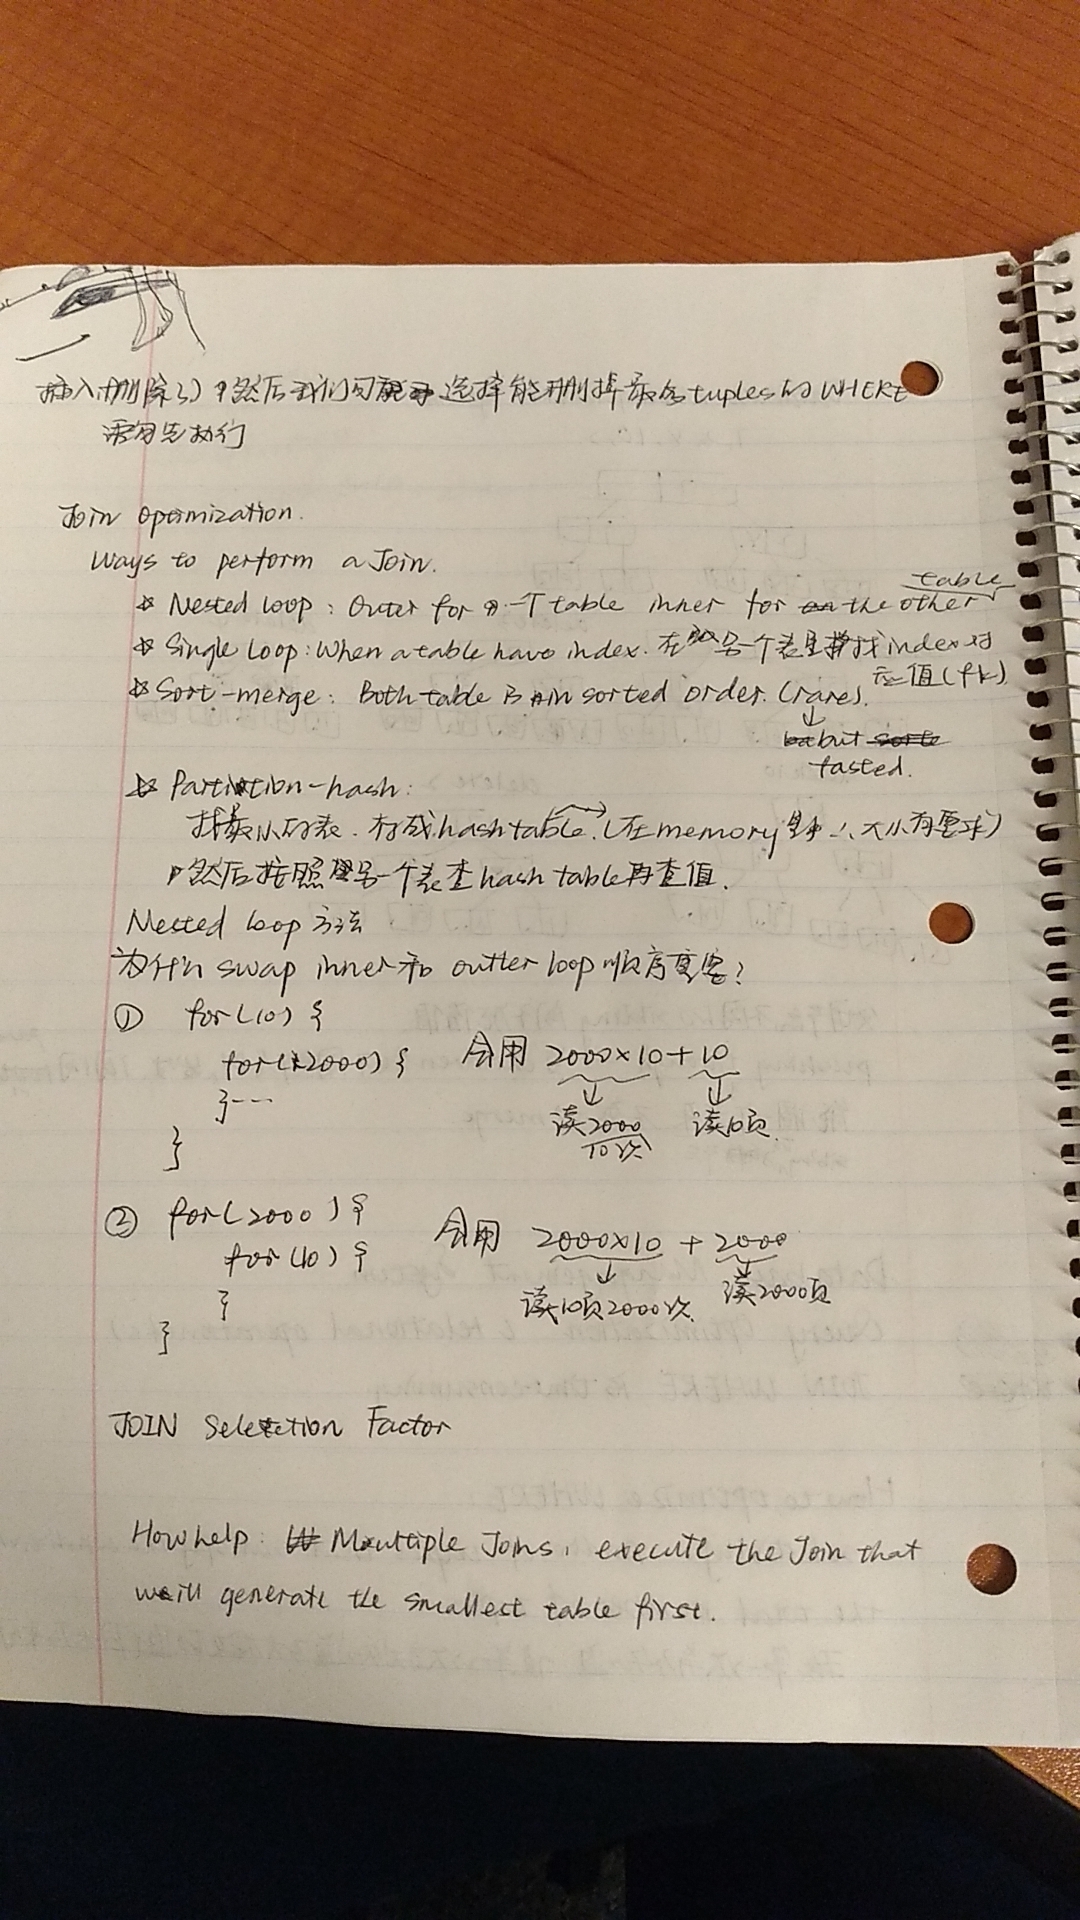 插入删除了) 然后我们可以选择能删掉最多tuples的WHERE
语句先执行
Join optimization.
Ways to perform a Join.
Nested loop: Outer for 一个table inner for the other table
Single Loop: When a table have index. 在另一个表里找index对应值(fk)
Sort-merge: Both table is in sorted order. (rare).
↓
but
fasted.
Partition-hash:
找小的表. 存成hash table. (在memory里, 大小有要求)
然后按照另一个表查hash table再查值.
Nested loop 方法
为什么 swap inner和 outter loop 顺序更宽?
① for(10) {
for(2000) { 会用 2000×10+10
}--- 读2000 10次 读10页
}
② for(2000) {
for(10) { 会用 2000×10 + 2000
} 读10页2000次 读2000页
}
JOIN Selection Factor
How help: Multiple Joins, execute the Join that
will generate the smallest table first.